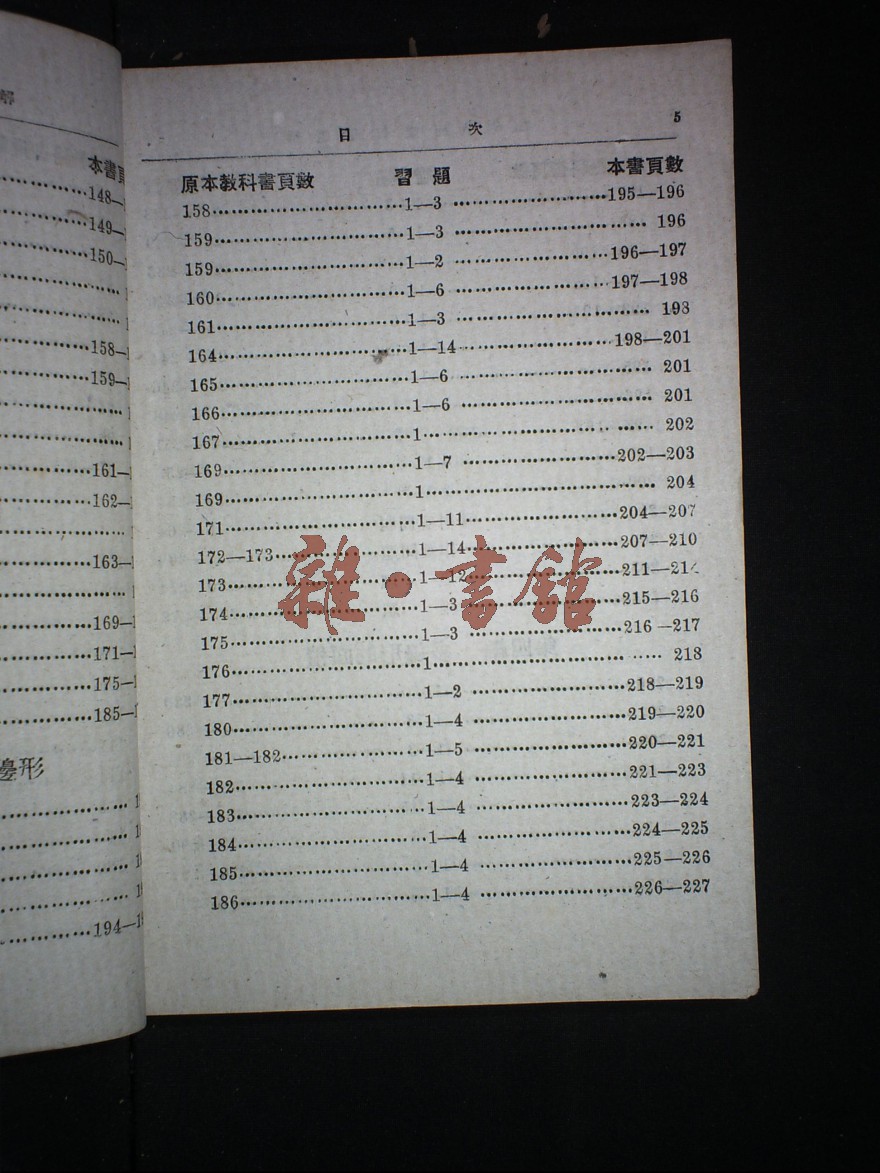 本書頁
148—
149—
150—
158—
159—
161—
162—
163—
169—
171—
175—
185—
邊形
194—
日 次 5
原本教科書頁數 習題 本書頁數
158……1—3……195—196
159……1—3……196
159……1—2……196—197
160……1—6……197—198
161……1—3……198
164……1—14……198—201
165……1—6……201
166……1—6……201
167……1……202
169……1—7……202—203
169……1……204
171……1—11……204—207
172—173……1—14……207—210
173……1—12……211—21
174……1—3……215—216
175……1—3……216—217
176……1……218
177……1—2……218—219
180……1—4……219—220
181—182……1—5……220—221
182……1—4……221—223
183……1—4……223—224
184……1—4……224—225
185……1—4……225—226
186……1—4……226—227
雜·書館